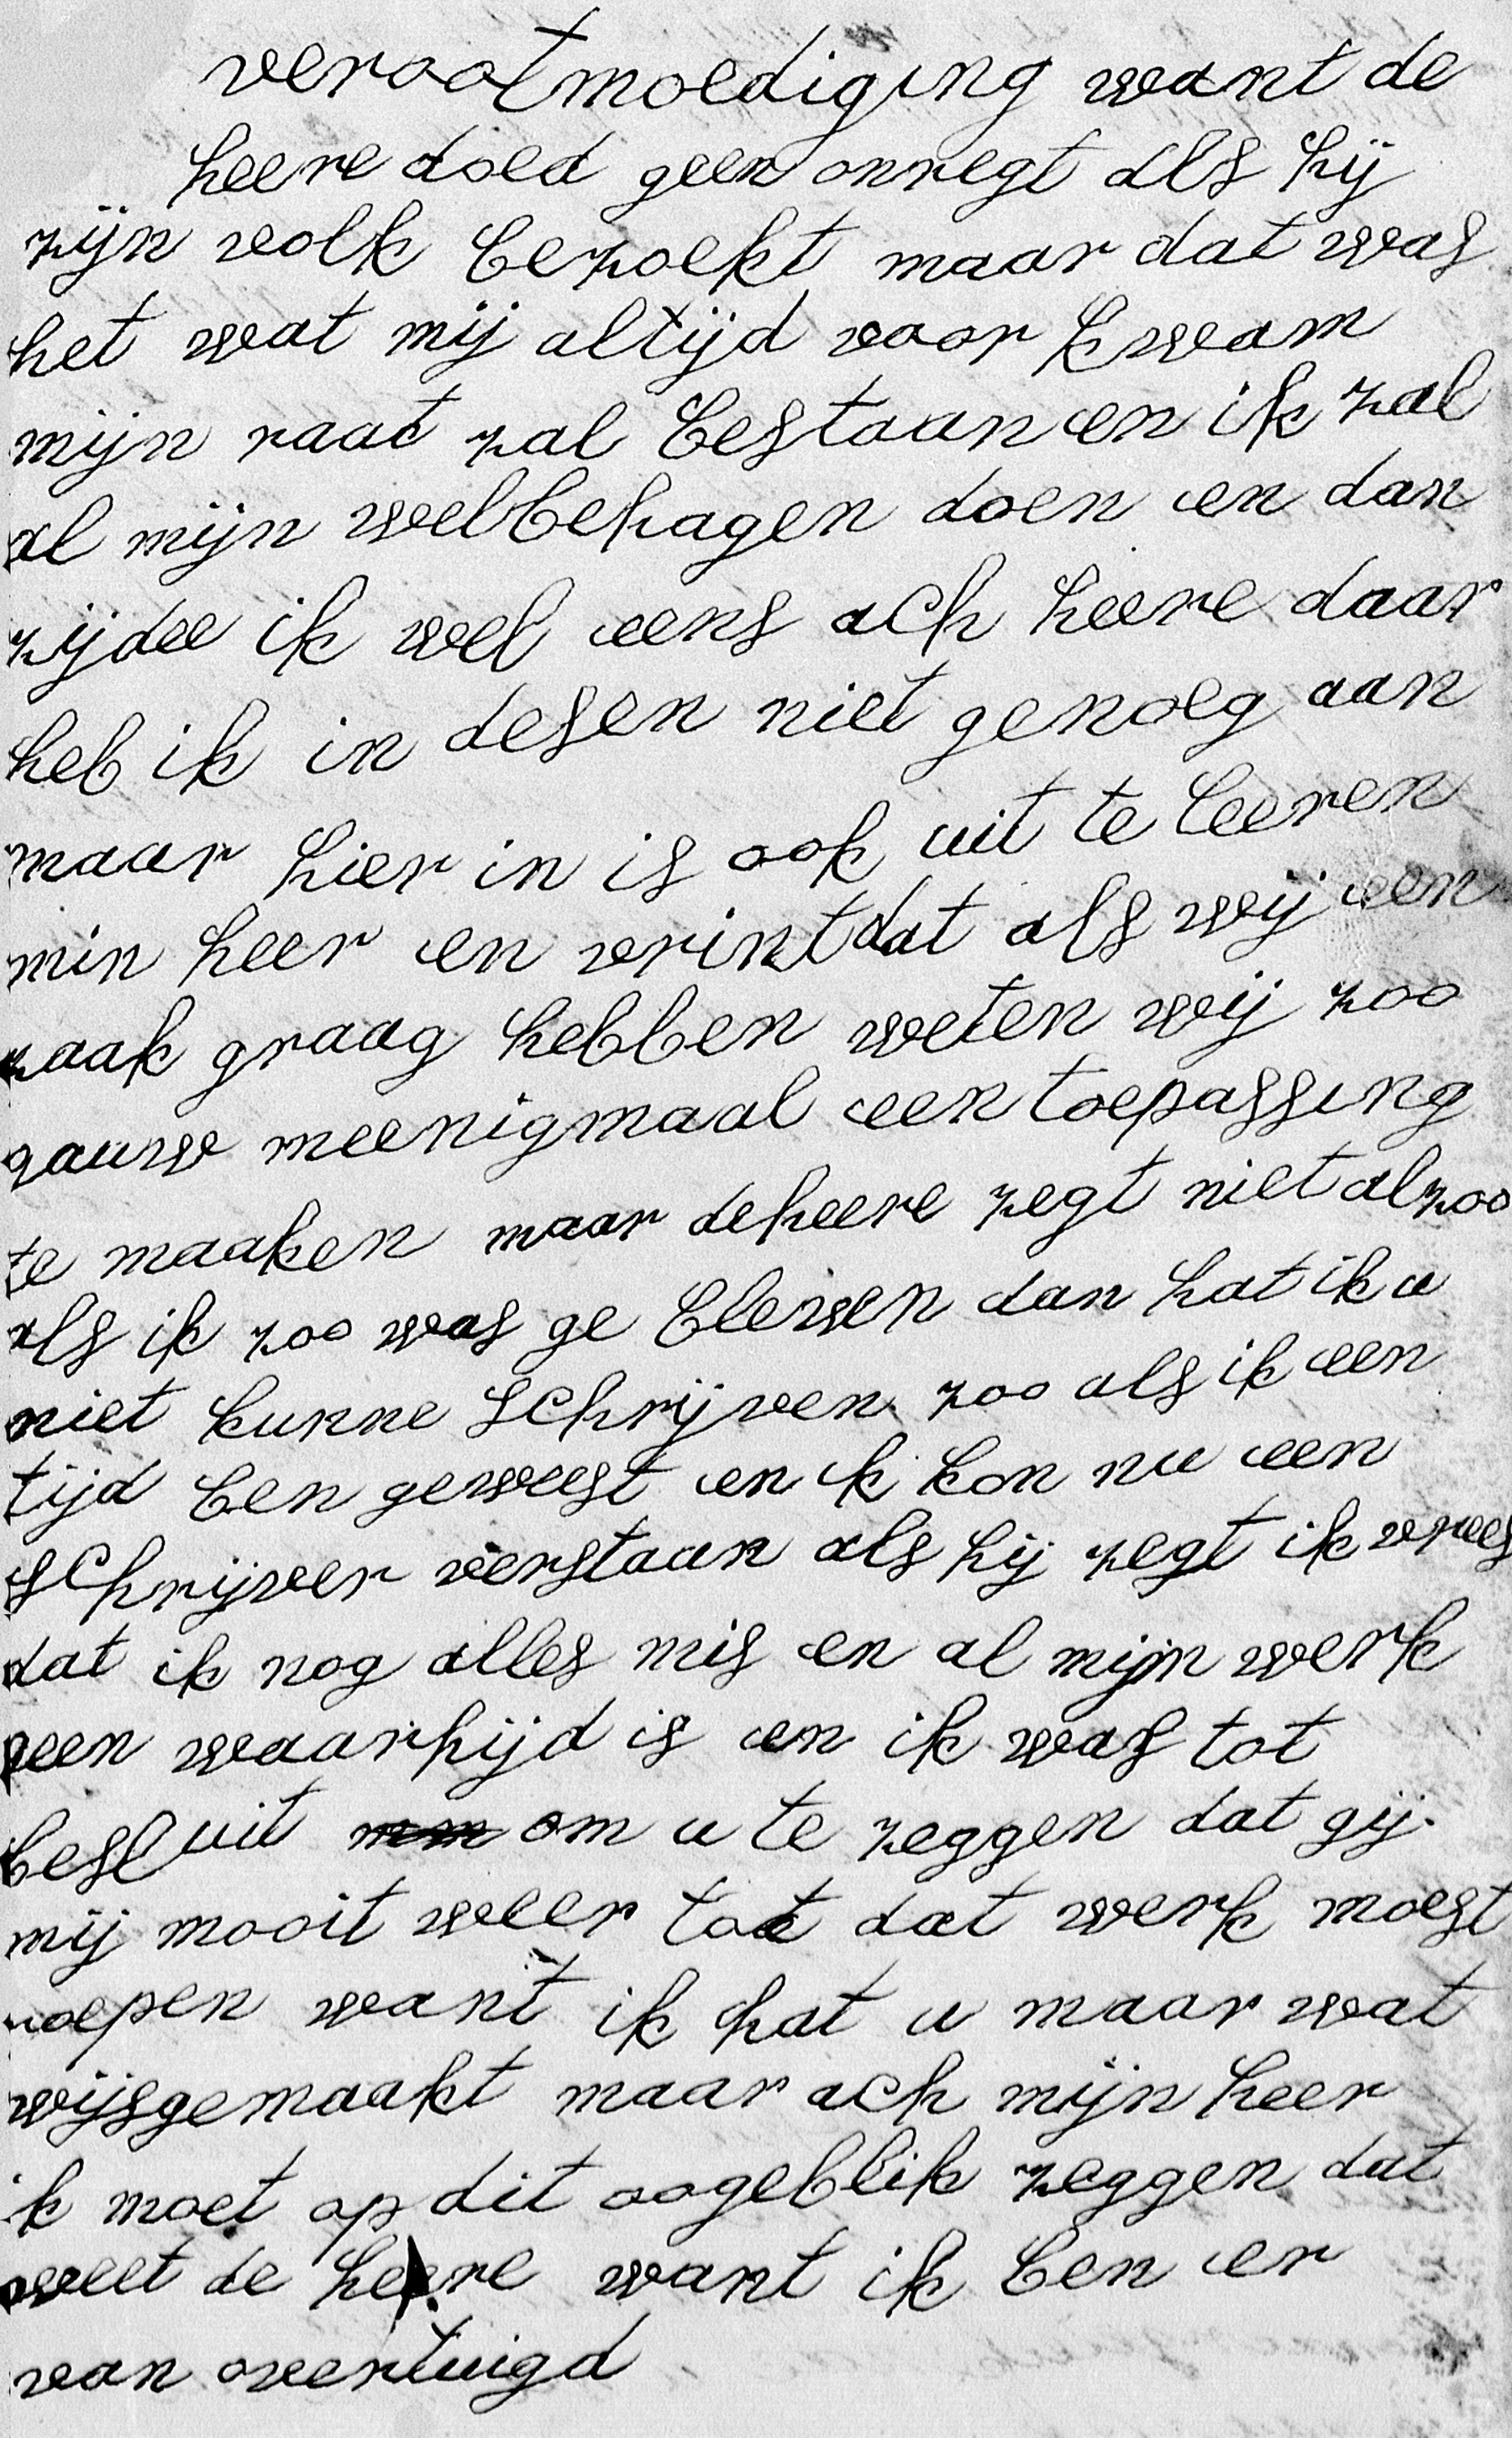 verootmoediging want de
heere doed geen onregt als hij
zijn volk bezoekt maar dat was
het wat mij altijd voor kwam
mijn raat zal bestaan en ik zal
al mijn welbehagen doen en dan
zijdee ik wel eens ach heere daar
heb ik in desen niet genoeg aan
maar hier in is ook uit te leeren
min heer en vrint dat als wij een
zaak graag hebben weten wij zoo
gauw meenigmaal een toepassing
te maaken maar de heere zegt niet alzoo
als ik zoo was ge blewen dan hat ik u
niet kunne schrijven zoo als ik een
tijd ben geweest en ik kon nu een
schrijver verstaan als hij zegt ik vrees
dat ik nog alles mis en al mijn werk
geen waarhijd is en ik was tot
besluit om u te zeggen dat gij
mij mooit weer tot dat werk moest
roepen want ik hat u maar wat
wijsgemaakt maar ach mijn heer
ik moet op dit oogeblik zeggen dat
weet de heere want ik ben er
van overtuigd